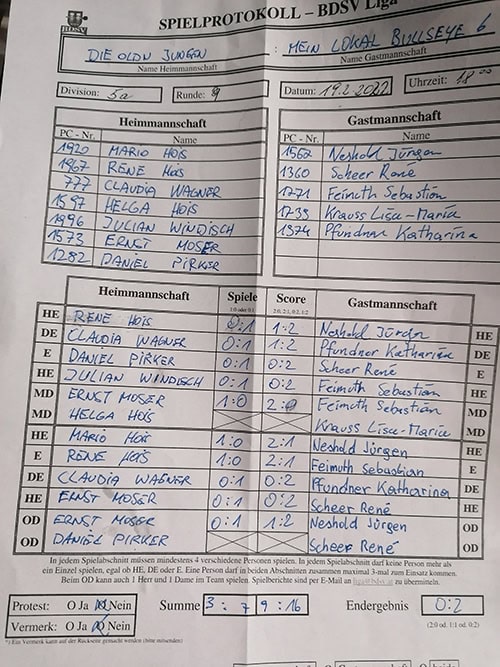 SPIELPROTOKOLL – BDSV Liga
DIE OLDN JUNGEN : MEIN LOKAL BULLSEYE 6
Name Heimmannschaft Name Gastmannschaft
Division: 5a Runde: 9 Datum: 19.2.2022 Uhrzeit: 18 00
Heimmannschaft Gastmannschaft
PC - Nr. Name PC - Nr. Name
1920 MARIO HOIS 1562 Neshold Jürgen
1967 RENE HOIS 1360 Scheer René
777 CLAUDIA WAGNER 1771 Feimuth Sebastian
1597 HELGA HOIS 1739 Krauss Lisa-Maria
1996 JULIAN WINDISCH 1374 Pfundner Katharina
1573 ERNST MOSER
1282 DANIEL PIRKER
Heimmannschaft Spiele Score Gastmannschaft
1:0 oder 0:1 2:0, 2:1, 0:2, 1:2
HE RENE HOIS 0:1 1:2 Neshold Jürgen HE
DE CLAUDIA WAGNER 0:1 1:2 Pfundner Katharina DE
E DANIEL PIRKER 0:1 0:2 Scheer René E
HE JULIAN WINDISCH 0:1 0:2 Feimuth Sebastian HE
MD ERNST MOSER 1:0 2:0 Feimuth Sebastian MD
MD HELGA HOIS Krauss Lisa-Maria MD
HE MARIO HOIS 1:0 2:1 Neshold Jürgen HE
E RENE HOIS 1:0 2:1 Feimuth Sebastian E
DE CLAUDIA WAGNER 0:1 0:2 Pfundner Katharina DE
HE ERNST MOSER 0:1 0:2 Scheer René HE
OD ERNST MOSER 0:1 1:2 Neshold Jürgen OD
OD DANIEL PIRKER Scheer René OD
In jedem Spielabschnitt müssen mindestens 4 verschiedene Personen spielen. In jedem Spielabschnitt darf keine Person mehr als
ein Einzel spielen, egal ob HE, DE oder E. Eine Person darf in beiden Abschnitten zusammen maximal 3-mal zum Einsatz kommen.
Beim OD kann auch 1 Herr und 1 Dame im Team spielen. Spielberichte sind per E-Mail an liga@bdsv.at zu übermitteln.
Protest: O Ja O Nein Summe 3 : 7 9 : 16 Endergebnis 0:2
Vermerk: O Ja O Nein (2:0 od. 1:1 od. 0:2)
*) Ein Vermerk kann auf der Rückseite gemacht werden (bitte ankreuzen)